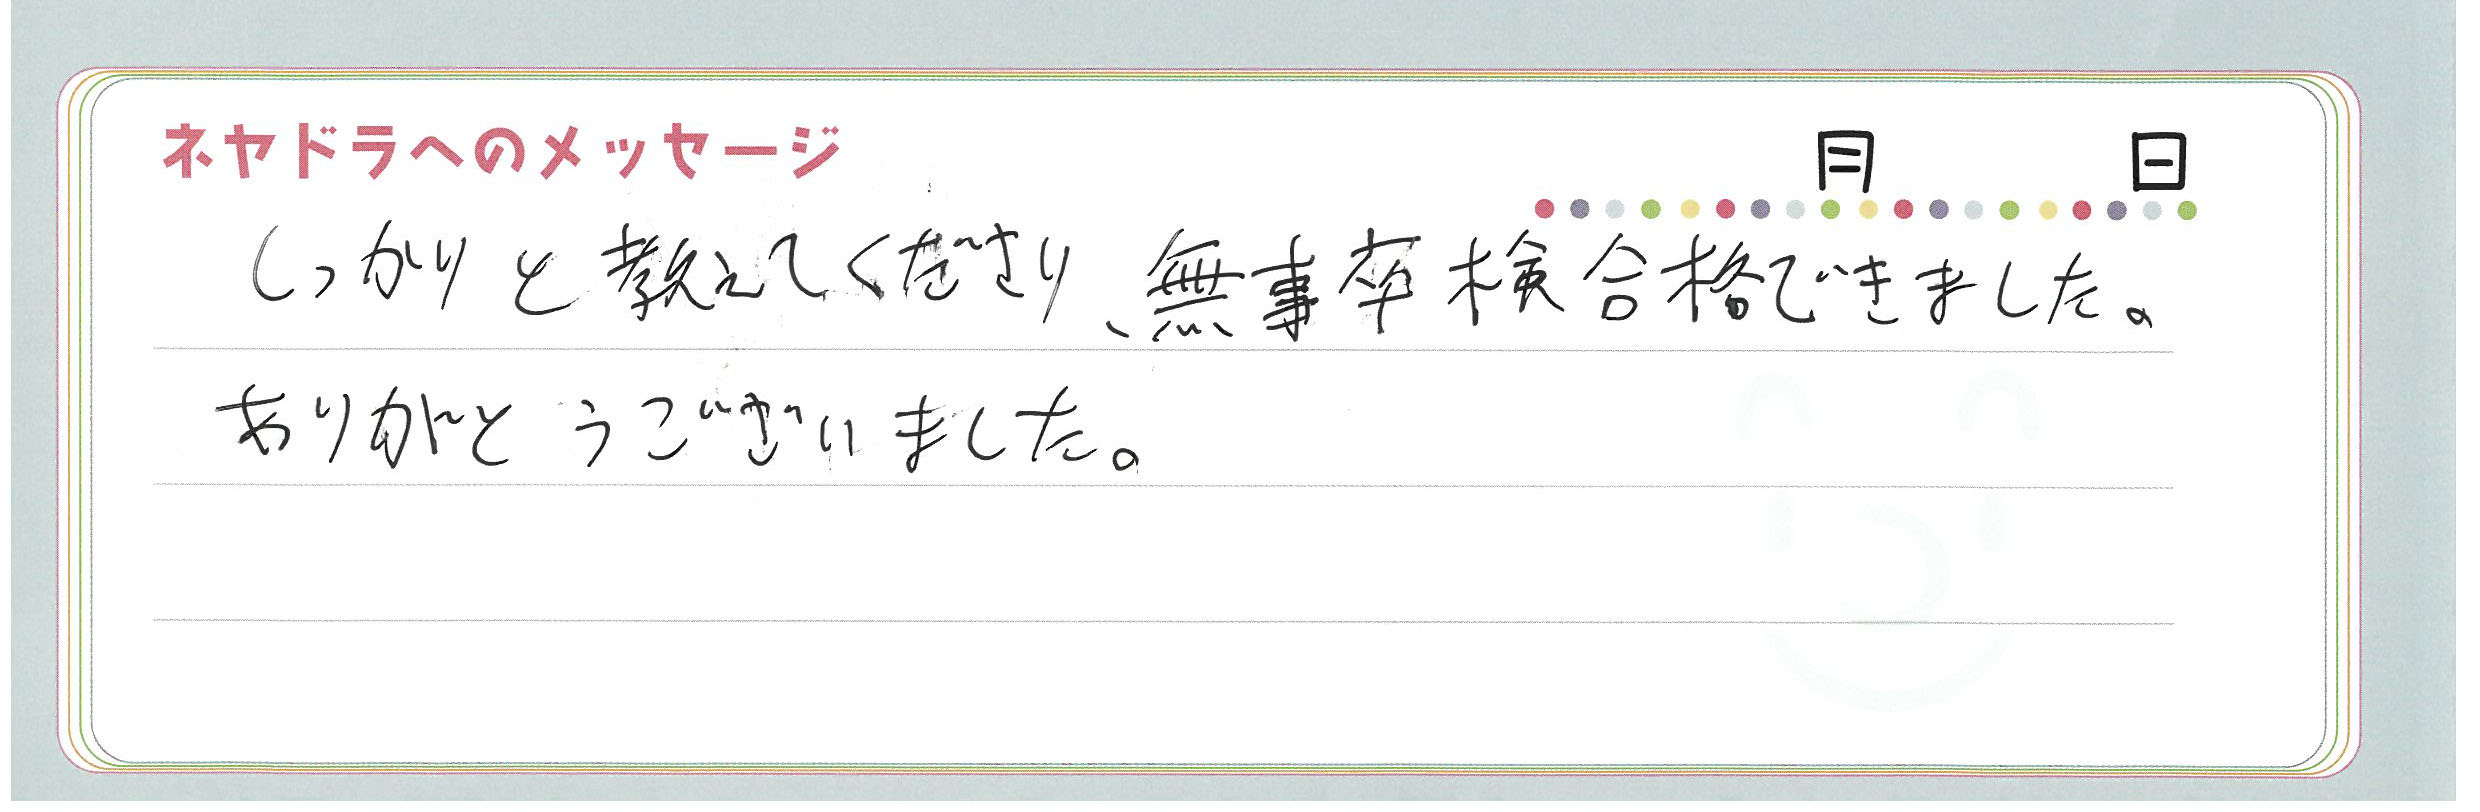 ネヤドラへのメッセージ
月 日
しっかりと教えてくださり、無事卒検合格できました。
ありがとうございました。